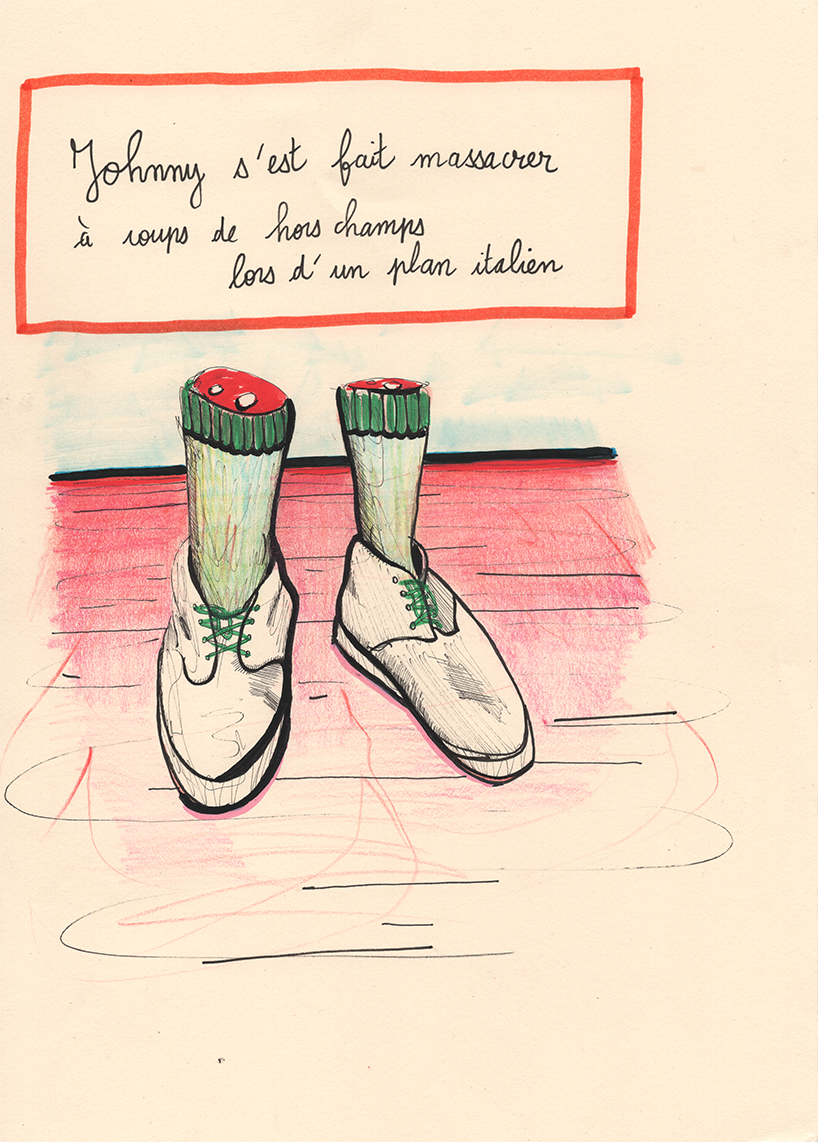 Johnny s'est fait massacrer
à coups de hors champs
lors d'un plan italien